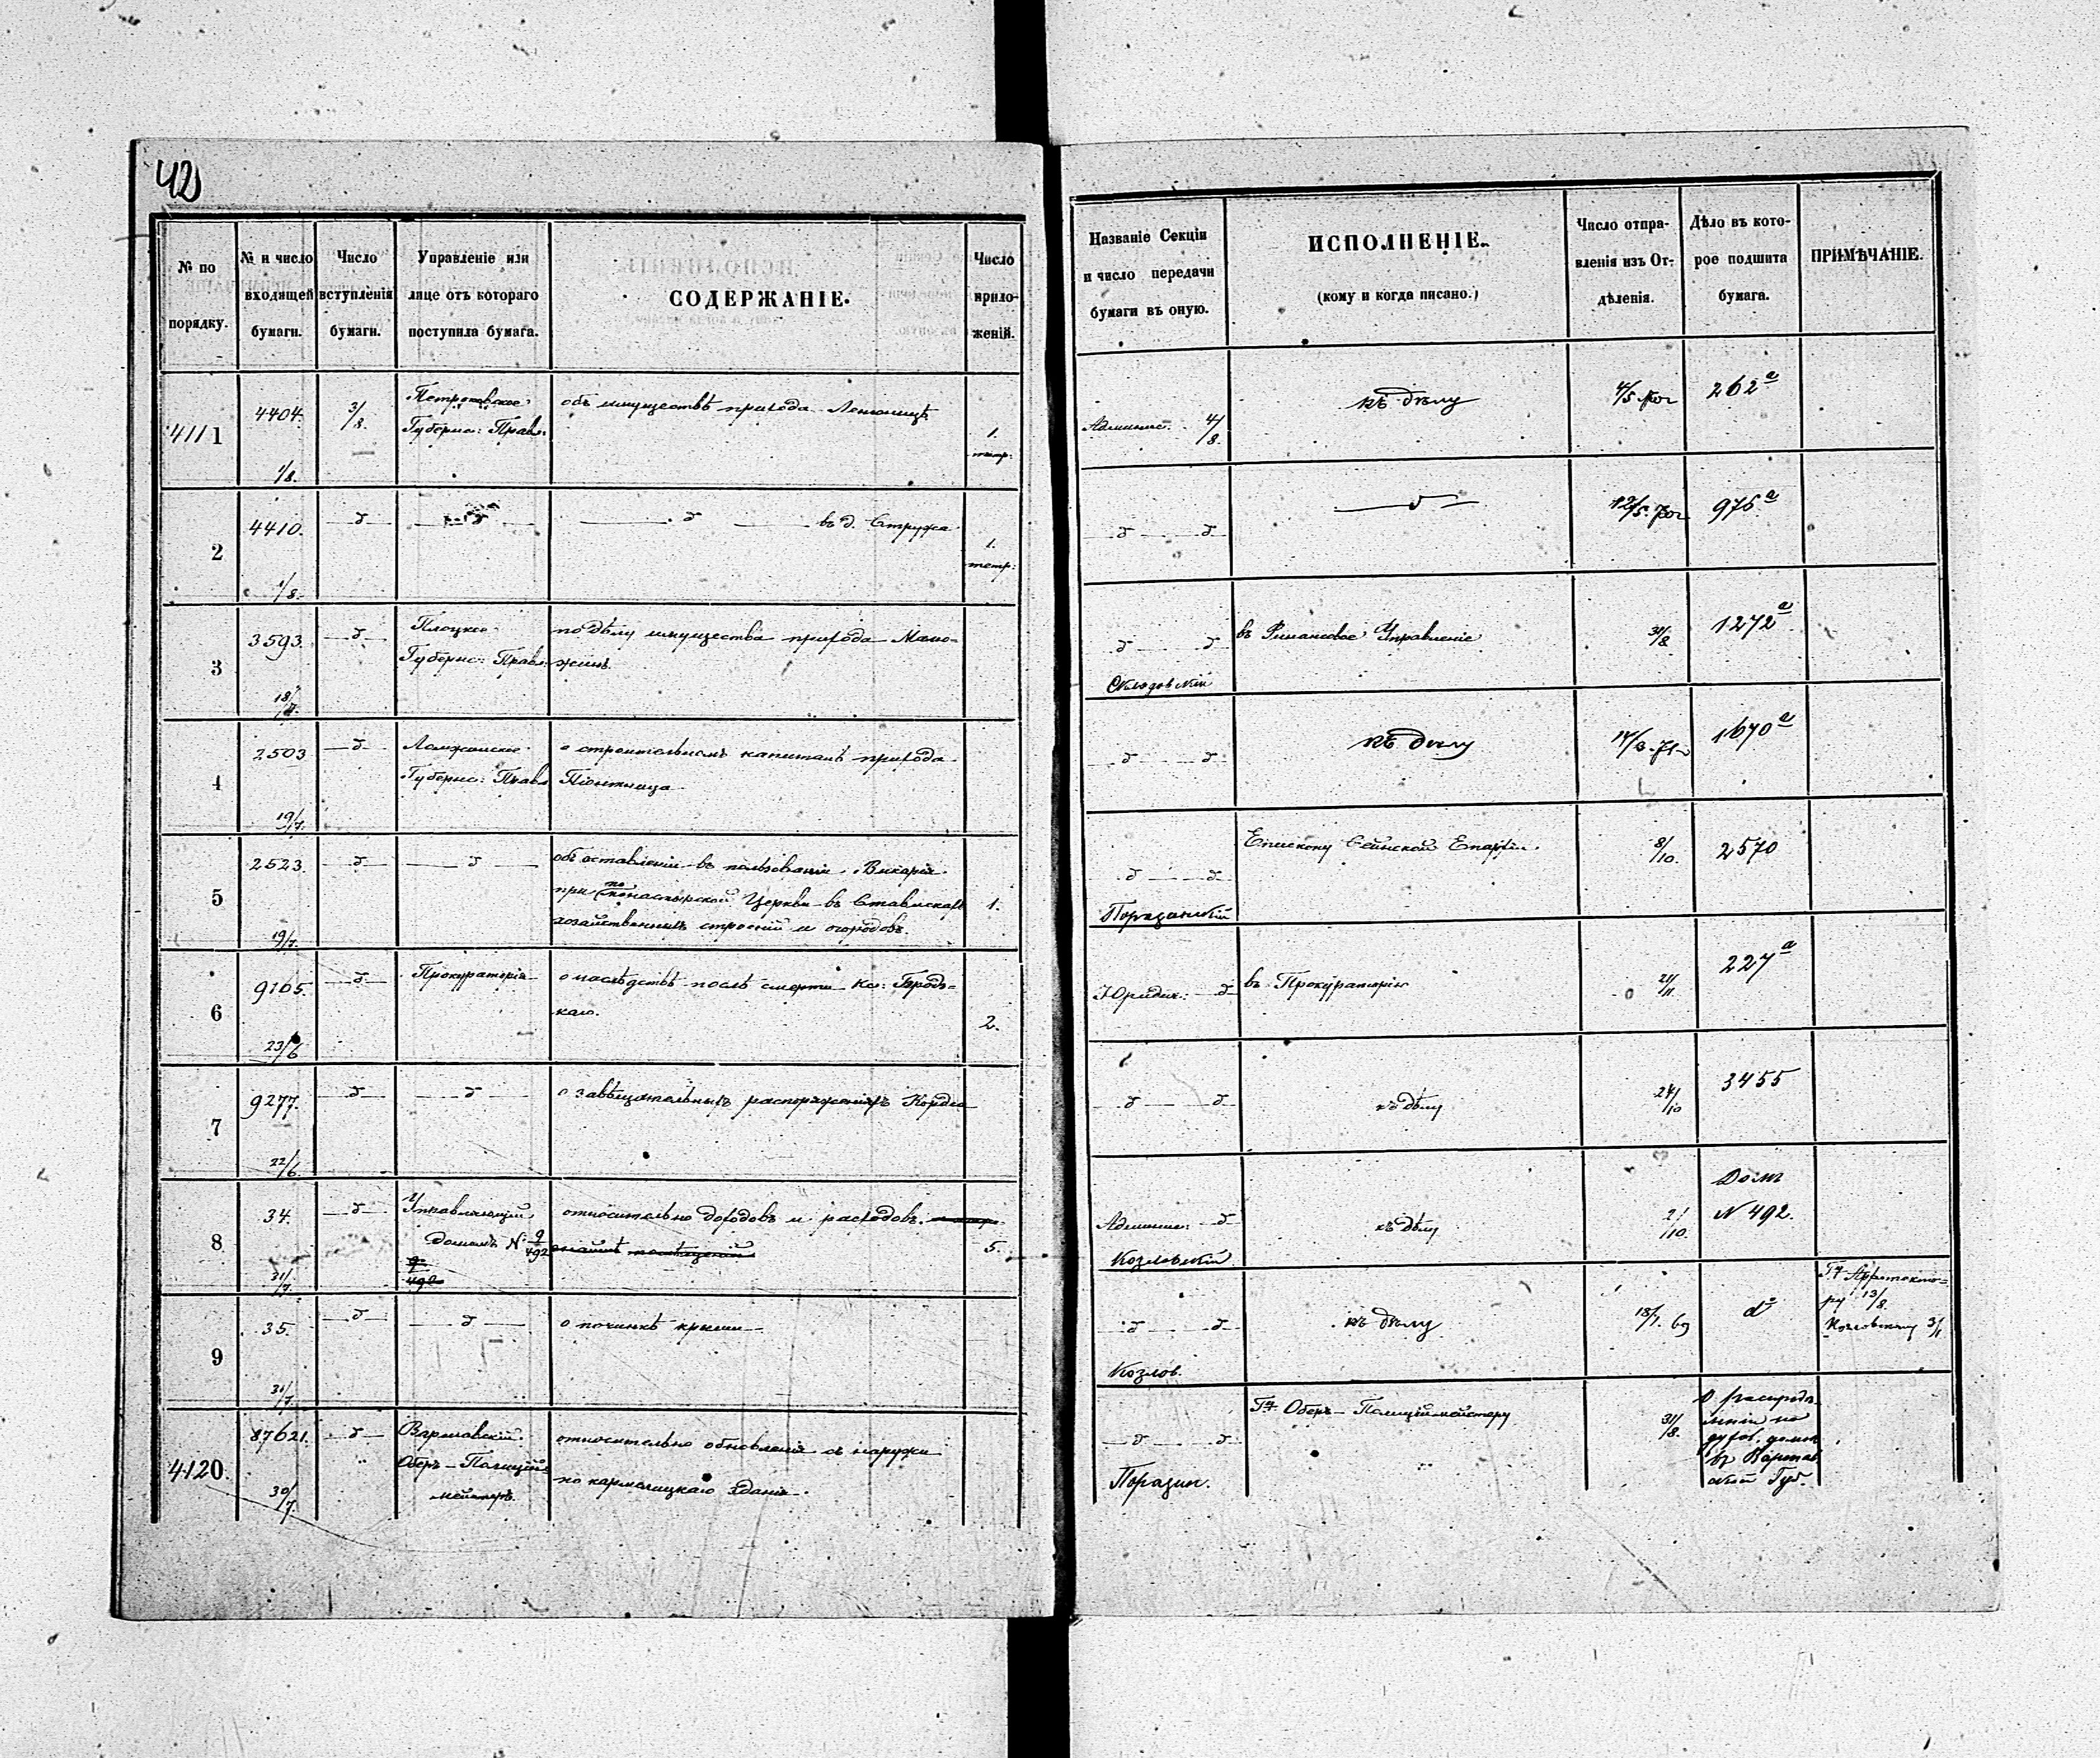 42
№ по порядку.
№ и число входящей бумаги.
Число вступленія бумаги.
Управленіе или лице отъ котораго поступила бумага.
СОДЕРЖАНІЕ.
Число приложеній.
Названіе Секціи и число передачи бумаги въ оную.
ИСПОЛНЕНІЕ.
(кому и когда писано.)
Число отправленія изъ Отдѣленія.
Дѣло въ которое подшита бумага.
ПРИМѢЧАНІЕ.
4111
4404.
1/8.
3/8.
Петроковское
Губернс: Правл:
объ имуществѣ прихода
1.
тетр:
Админис. 4/8.
къ дѣлу
4/5
262а
2
4410.
1/8.
въ д. Стружа
1.
тетр:
12/5
975а
3
3593.
18/7.
Плоцкое
Губернс: Правл:
по дѣлу имущества прихода Мало-
жинъ.
Склодовскій
въ Финансовое Управленіе
31/8
1272а
4
2503
19/7.
Ломжинское
Губернс: Правл
о строительномъ капиталѣ прихода
Піонтница
къ дѣлу
1670а
5
2523.
19/7.
объ оставленіи въ пользованіи Викарія
при по монастырской Церкви въ Ставискахъ
хозяйственныхъ строеній и огородовъ.
1.
Поразинскій
Епископу Сейнской Епархіи.
8/10.
2570
6
9165.
23/6
Прокураторія
о наслѣдствѣ послѣ смерти Кс: Бродз-
каго.
2.
Юридич:
въ Прокураторію
21/11
227а
7
9277.
22/6.
о завѣщательныхъ распоряженіяхъ
къ дѣлу
24/10
3455
8
34.
31/7.
Управляющій
домомъ № 9/492
относительно доходовъ и расходовъ.
5.
Админис:
Козловскій
къ дѣлу
2/10.
Домъ
№ 492.
9
35.
31/7.
о починкѣ крыши
Козлов.
къ дѣлу
18/1. 69
dº
13/8.
Козловскому 3/1
4120.
87621.
30/7.
Варшавскій
Оберъ-Полиций
мейстеръ.
относительно обновленія съ наружи
по кармелицкаго зданія.
Поразин.
Гну Оберъ-Полиціймейстеру
31/8.
въ Варшав
ской Губ.